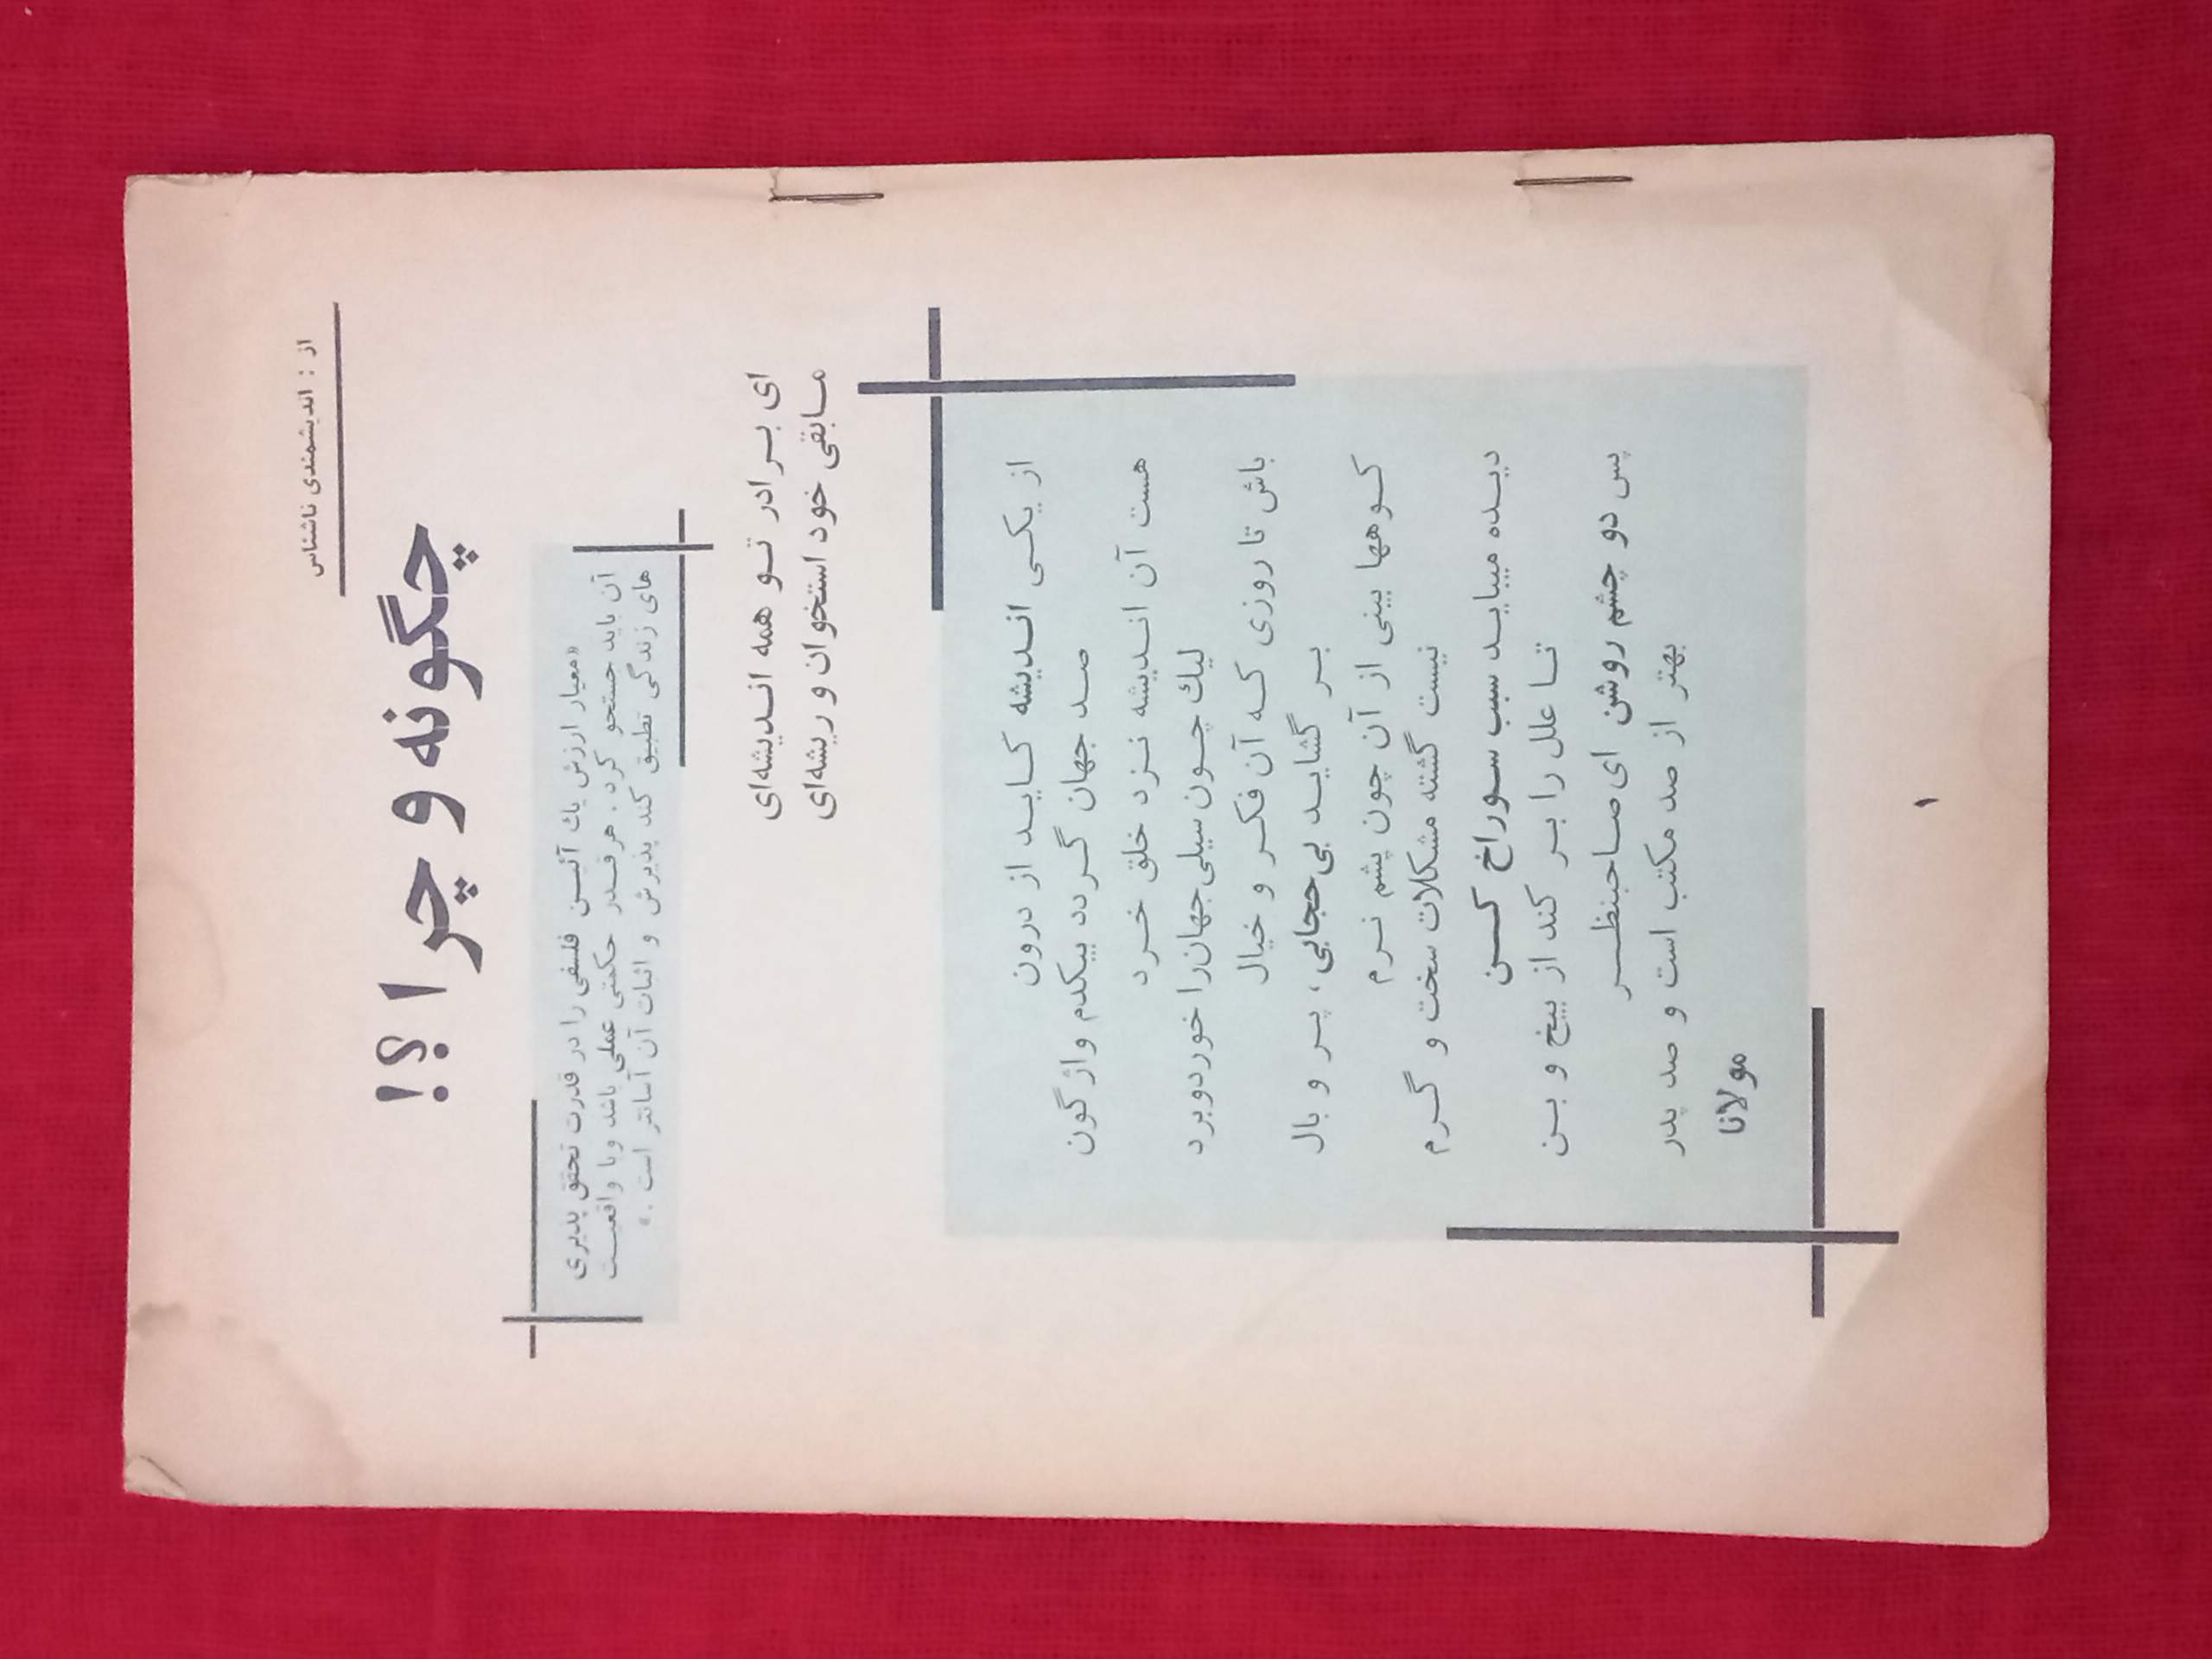 از : اندیشمندی ناشناس
چگونه و چرا ؟!
«معیار ارزش یك آئین فلسفی را در قدرت تحقق پذیری
آن باید جستجو کرد . هرقدر حکمتی عملی باشد وبا واقعیت
های زندگی تطبیق کند پذیرش و اثبات آن آسانتر است .»
ای برادر تو همه اندیشه‌ای
مابقی خود استخوان و ریشه‌ای
از یکی اندیشه کاید از درون
صد جهان گردد بیکدم واژگون
هست آن اندیشه نزد خلق خرد
لیك چون سیلی جهان‌را خوردوبرد
باش تا روزی که آن فکر و خیال
بر گشاید بی‌حجابی ، پر و بال
کوهها بینی از آن چون پشم نرم
نیست گشته مشکلات سخت و گرم
دیده میباید سبب سوراخ کن
تا علل را بر کند از بیخ و بن
پس دو چشم روشن ای صاحبنظر
بهتر از صد مکتب است و صد پدر
مولانا
۱